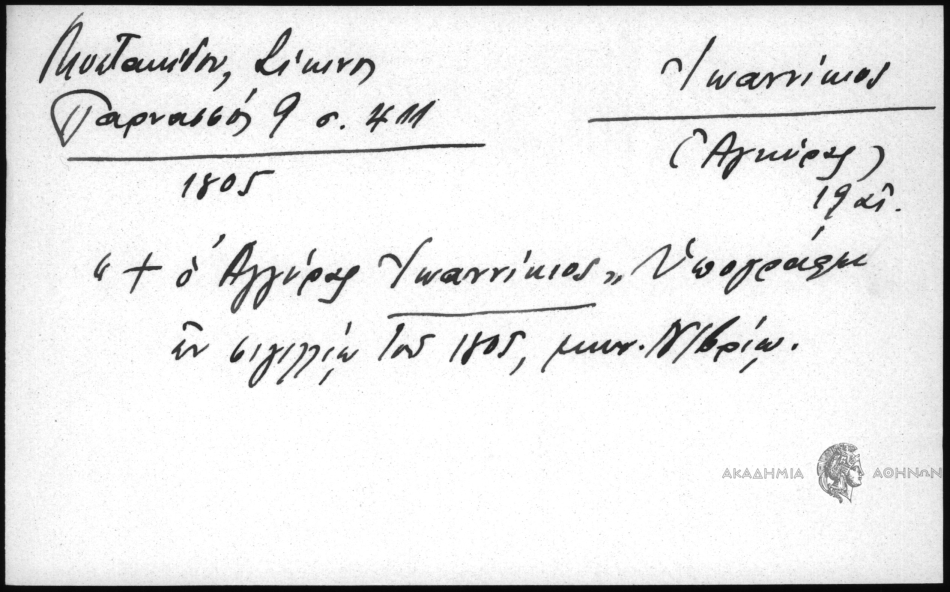 Μουστακίδου, Σίκινος
Παρνασσός 9 σ. 411
1805
Ἰωαννίκιος
(Ἀγκύρας)
19 αἰ.
"+ ὁ Ἀγγύρας Ἰωαννίκιος" Ὑπογράφει
ἐν σιγιλλίῳ τοῦ 1805, μην. Νοεμβρίῳ.
ΑΚΑΔΗΜΙΑ ΑΘΗΝΩΝ